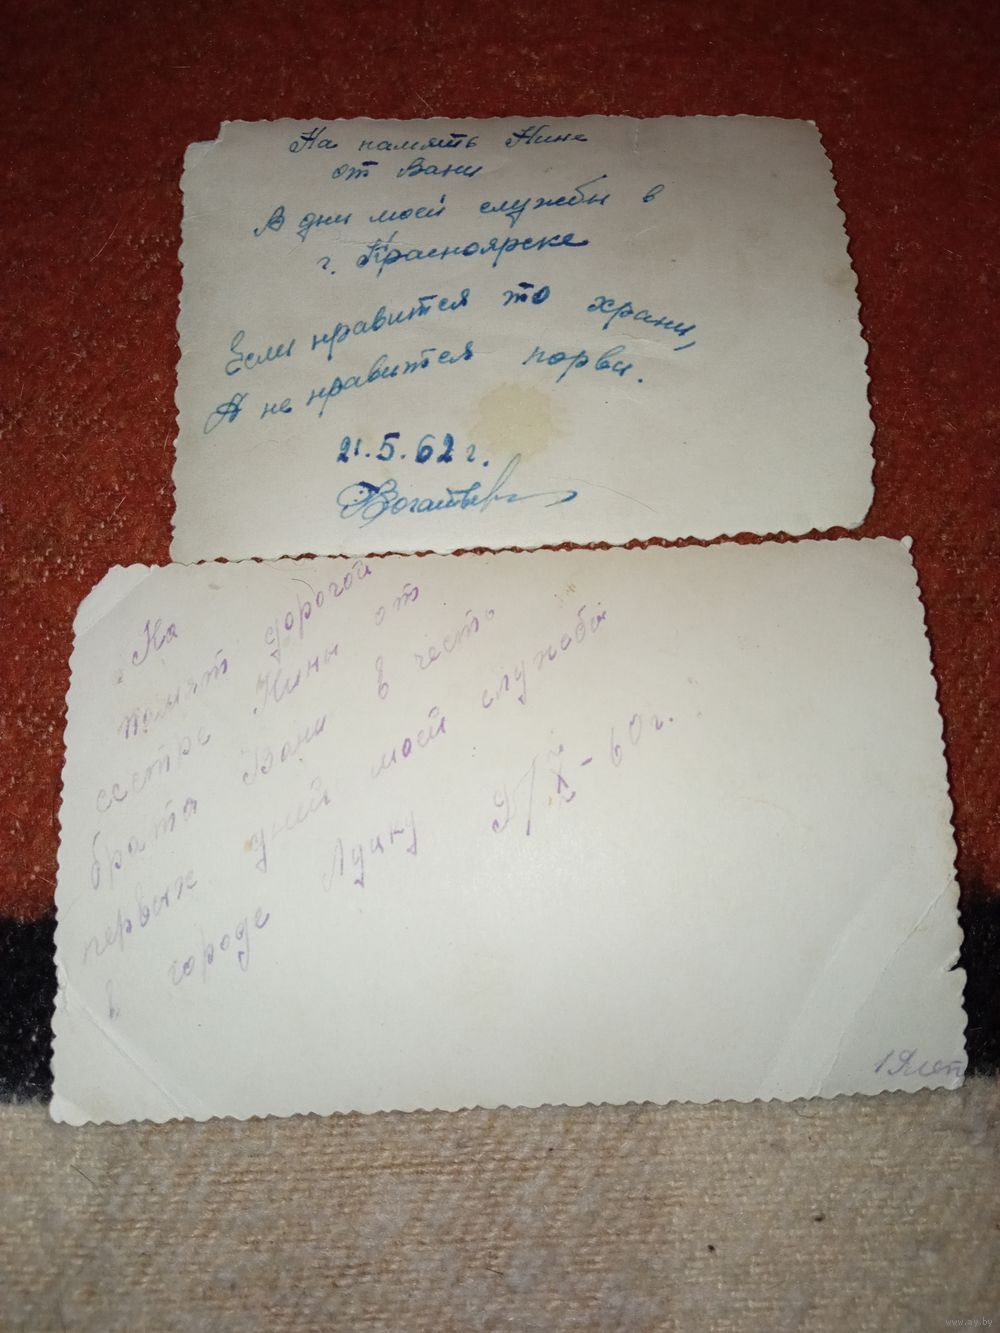 На память Нине
от Вани
В дни моей службы в
г. Красноярске
Если нравится то храни,
А не нравится порви.
21.5.62 г.
На
памят дорогой
сестре Нины от
брата Вани в честь
первых дней моей службы
в городе Луцку 9/X-60г.
19 лет
www.ay.by